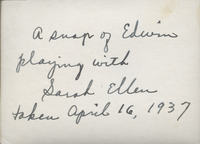 A snap of Edwin
playing with
Sarah Ellen
taken April 16, 1937